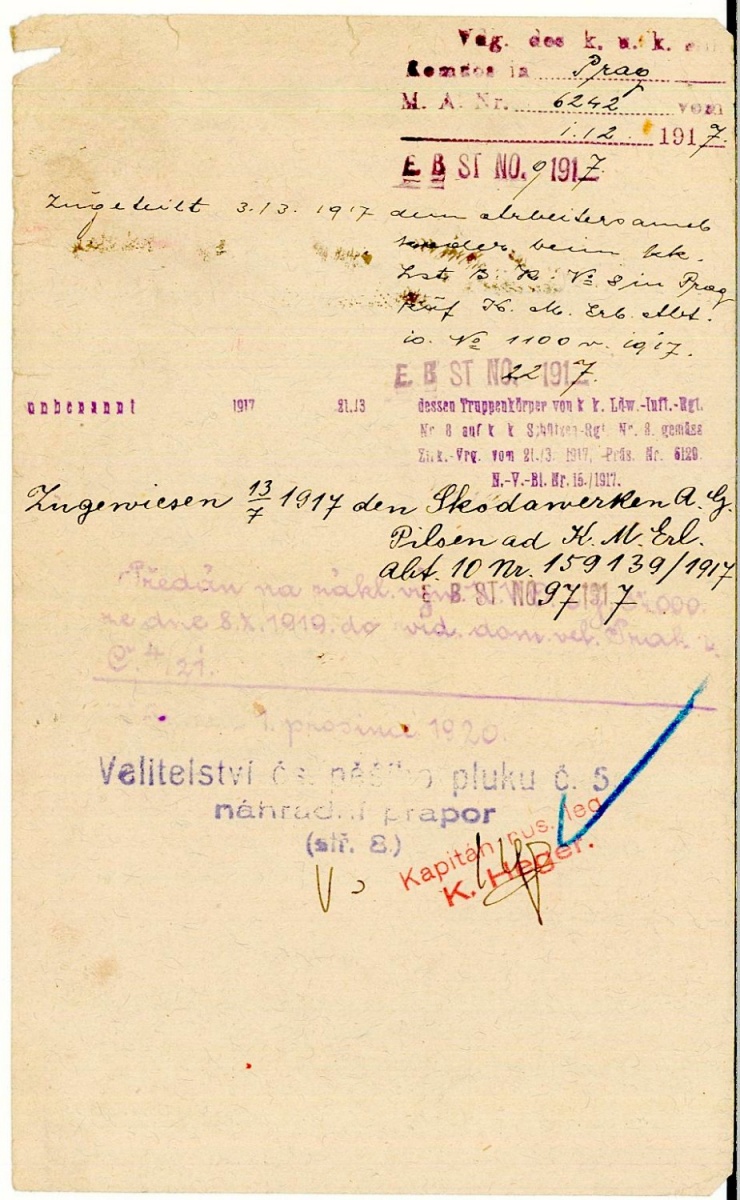 Vdg. des k. u. k.
Komdos in Prag
M. A. Nr. 6242 vom
1.12 1917.
E B ST NO. 9 1917
Zugeteilt 3./3. 1917 dem
beim kk.
Lst B. K. No 8 in Prag
K. M. Erl. Abt.
10. No 1100 v. 1917.
E B ST NO. 22 1917.
unbenannt 1917 21./3 dessen Truppenkörper von k k. Ldw.-Inft.-Rgt.
Nr 8 auf k k Schützen-Rgt. Nr. 8. gemäss
Zirk.-Vrg. vom 21./3. 1917, Präs. Nr. 6120.
N.-V.-Bl. Nr. 15./1917.
Zugewiesen 13/7 1917 den Skodawerken A. G.
Pilsen ad K. M. Erl.
Abt. 10 Nr. 159139/1917
E B ST NO 97 1917
Předán na zákl.
ze dne 8.X.1919. do
Č. 4/21.
1. prosince 1920.
Velitelství čs. pěšího pluku č. 5
náhradní prapor
(stř. 8.)
Kapitán rus. leg.
K. Heger.